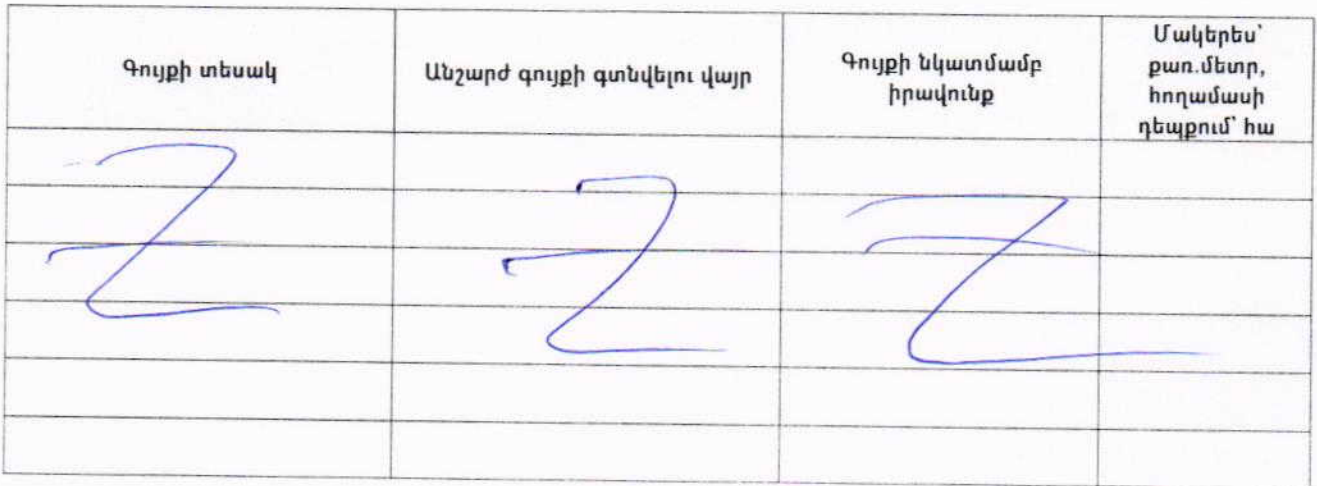 Գույքի տեսակ
Անշարժ գույքի գտնվելու վայր
Գույքի նկատմամբ
իրավունք
Մակերես՝
քառ.մետր,
հողամասի
դեպքում՝ հա